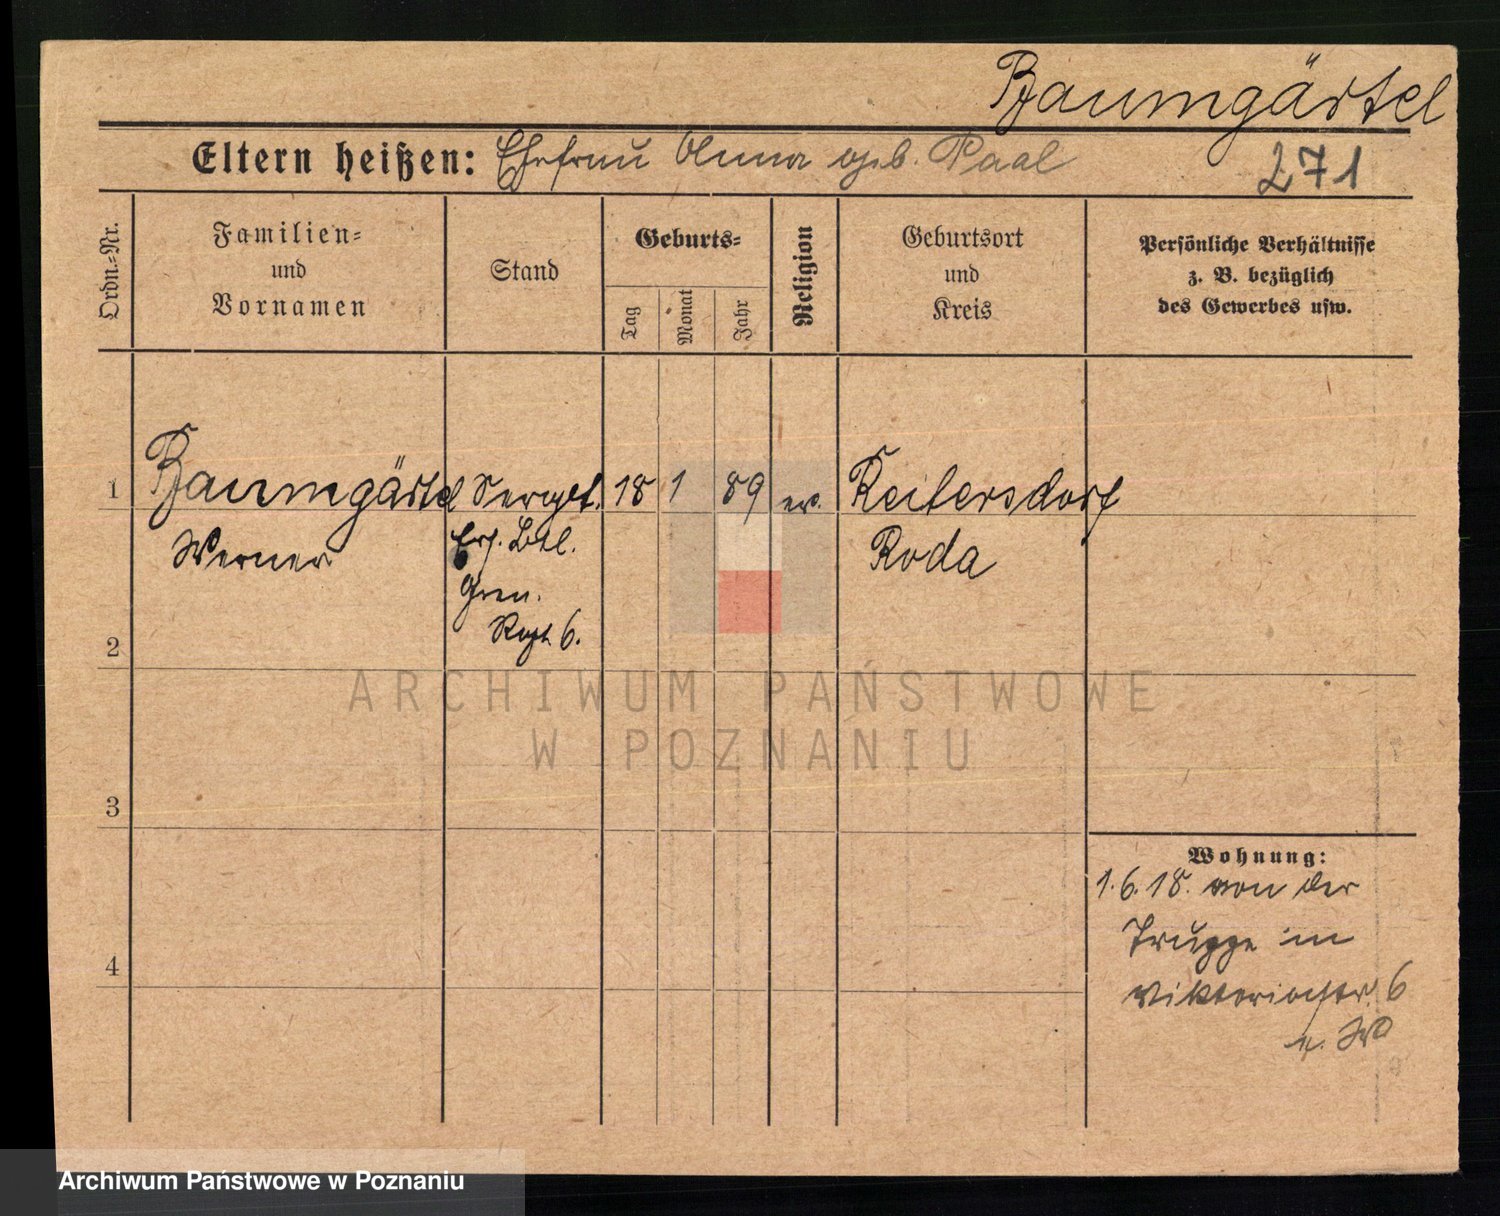 Baumgärtel
Eltern heißen: Ehefrau Anna geb. Paal
271
Ordn.=Nr.
Familien=
und
Vornamen
Stand
Geburts=
Tag
Monat
Jahr
Religion
Geburtsort
und
Kreis
Persönliche Verhältnisse
z. B. bezüglich
des Gewerbes usw.
1 Baumgärtel Sergt. 18 1 89 ev. Reitersdorf
Werner Ers. Btl. Roda
Gren.
Regt. 6.
2
3
4
Wohnung:
1.6.18. von der
Truppe in
Viktoriastr. 6
ARCHIWUM PAŃSTWOWE
W POZNANIU
Archiwum Państwowe w Poznaniu